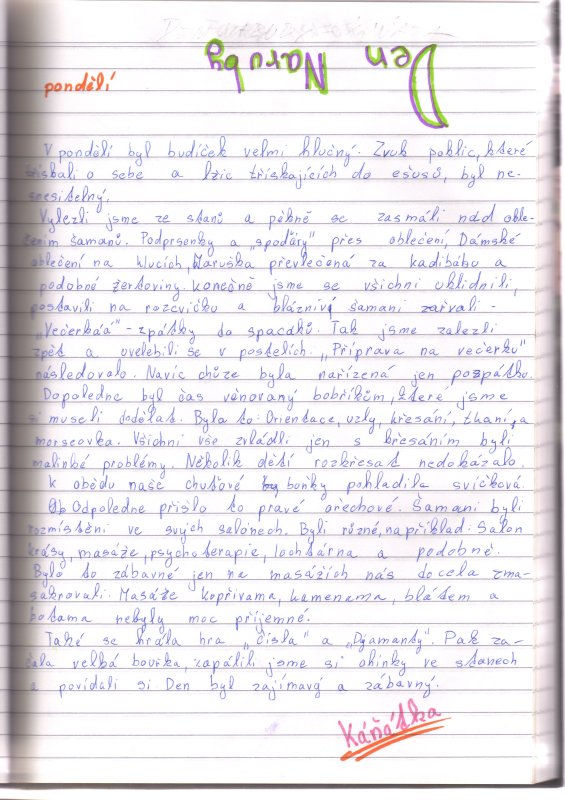 Den Naruby
pondělí
V pondělí byl budíček velmi hlučný. Zvuk poklic, které
třískali o sebe a lžic třískajících do ešusů, byl ne-
snesitelný.
Vylezli jsme ze stanů a pěkně se zasmáli nad oble-
čením šamanů. Podprsenky a "spoďáry" přes oblečení, Dámské
oblečení na klucích, Maruška převlečená za kadibúbu a
podobné žertoviny. Konečně jsme se všichni uklidnili,
postavili na rozcvičku a blázniví šamani zařvali -
"Večerkáá" - zpátky do spacáků. Tak jsme zalezli
zpět a uvelebili se v postelích. "Příprava na večerku"
následovalo. Navíc chůze byla nařízená jen pozpátku.
Dopoledne byl čas věnovaný bobříkům, které jsme
si museli dodělat. Byla to: Orientace, uzly, křesání, tkaní, a
morseovka. Všichni vše zvládli jen s křesáním byli
malinké problémy. Několik dětí rozkřesat nedokázalo.
K obědu naše chuťové buňky pohladila svíčková
Odpoledne přišlo to pravé ořechové. Šamani byli
rozmístěni ve svých salónech. Byli různé, například: Salon
krásy, masáže, psychoterapie, lochtárna a podobně.
Bylo to zábavné jen na masážích nás docela zma-
sakrovali. Masáže kopřivama, kamenama, blátem a
botama nebyly moc příjemné.
Také se hrála hra "Čísla" a "Dyamanty". Pak za-
čala velká bouřka, zapálili jsme si ohínky ve stanech
a povídali si. Den byl zajímavý a zábavný.
Káňátka